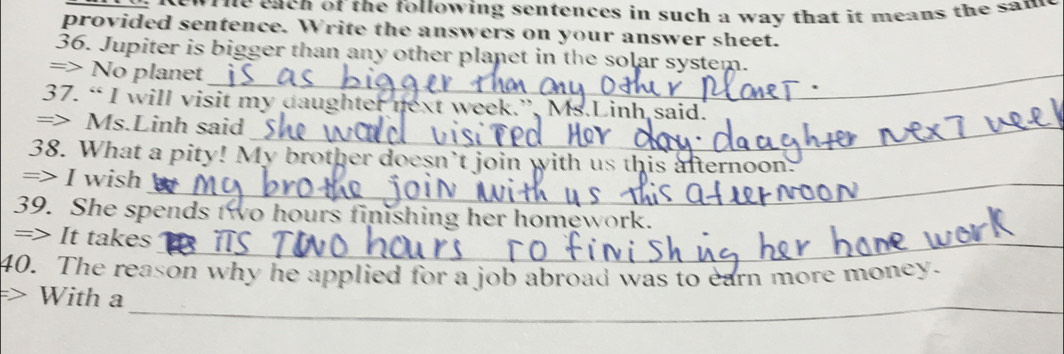 Rewrite each of the following sentences in such a way that it means the same
provided sentence. Write the answers on your answer sheet.
36. Jupiter is bigger than any other planet in the solar system.
=> No planet is as bigger than any other planet.
37. “ I will visit my daughter next week.”, Ms.Linh said.
=> Ms.Linh said she would visited Her day. daaghter next week
38. What a pity! My brother doesn’t join with us this afternoon.
=> I wish my brothe join with us this afternoon
39. She spends two hours finishing her homework.
=> It takes its Two hours to finishing her home work
40. The reason why he applied for a job abroad was to earn more money.
=> With a